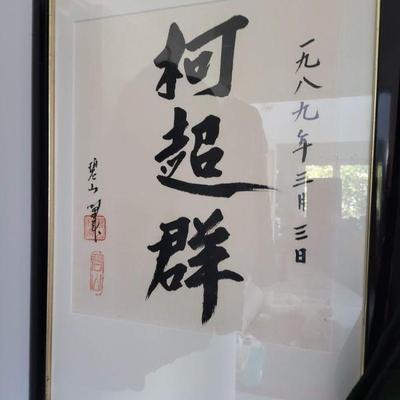 一九八九年三月三日
柯超群
碧山